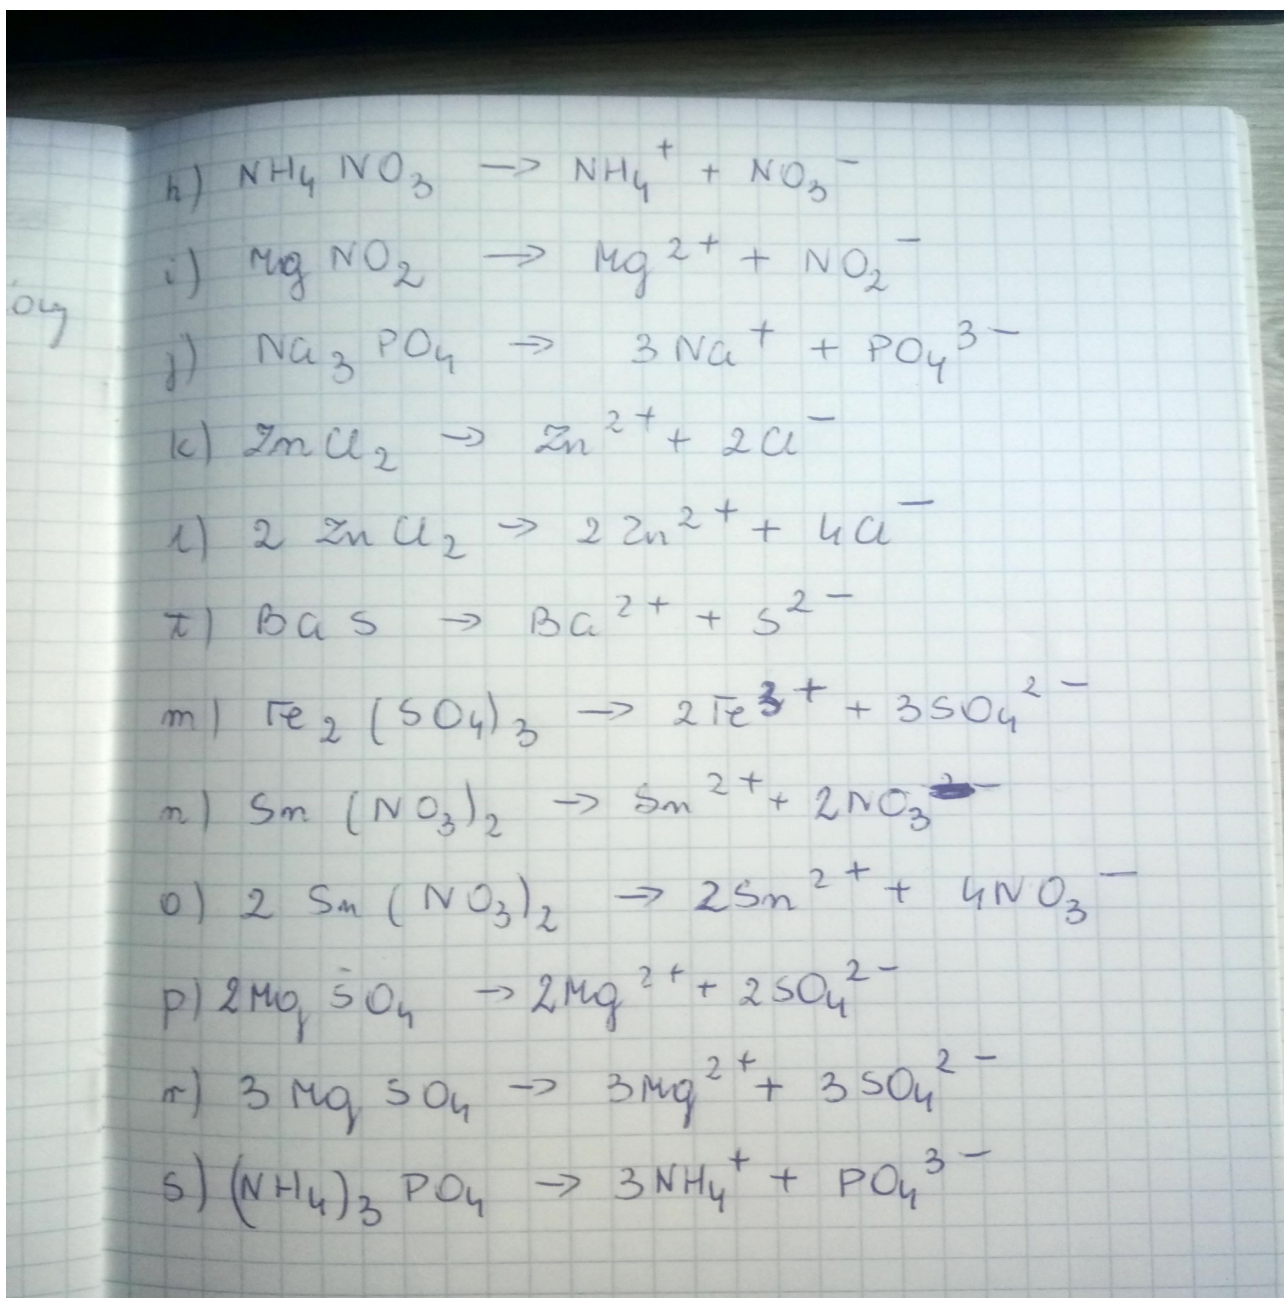 h) NH₄ NO₃ → NH₄⁺ + NO₃⁻
i) Mg NO₂ → Mg²⁺ + NO₂⁻
j) Na₃ PO₄ → 3Na⁺ + PO₄³⁻
k) ZnCl₂ → Zn²⁺ + 2Cl⁻
l) 2 ZnCl₂ → 2Zn²⁺ + 4Cl⁻
ł) BaS → Ba²⁺ + S²⁻
m) Fe₂ (SO₄)₃ → 2Fe³⁺ + 3SO₄²⁻
n) Sn (NO₃)₂ → Sn²⁺ + 2NO₃⁻
o) 2 Sn (NO₃)₂ → 2Sn²⁺ + 4NO₃⁻
p) 2Mg SO₄ → 2Mg²⁺ + 2SO₄²⁻
r) 3 Mg SO₄ → 3Mg²⁺ + 3SO₄²⁻
s) (NH₄)₃ PO₄ → 3NH₄⁺ + PO₄³⁻